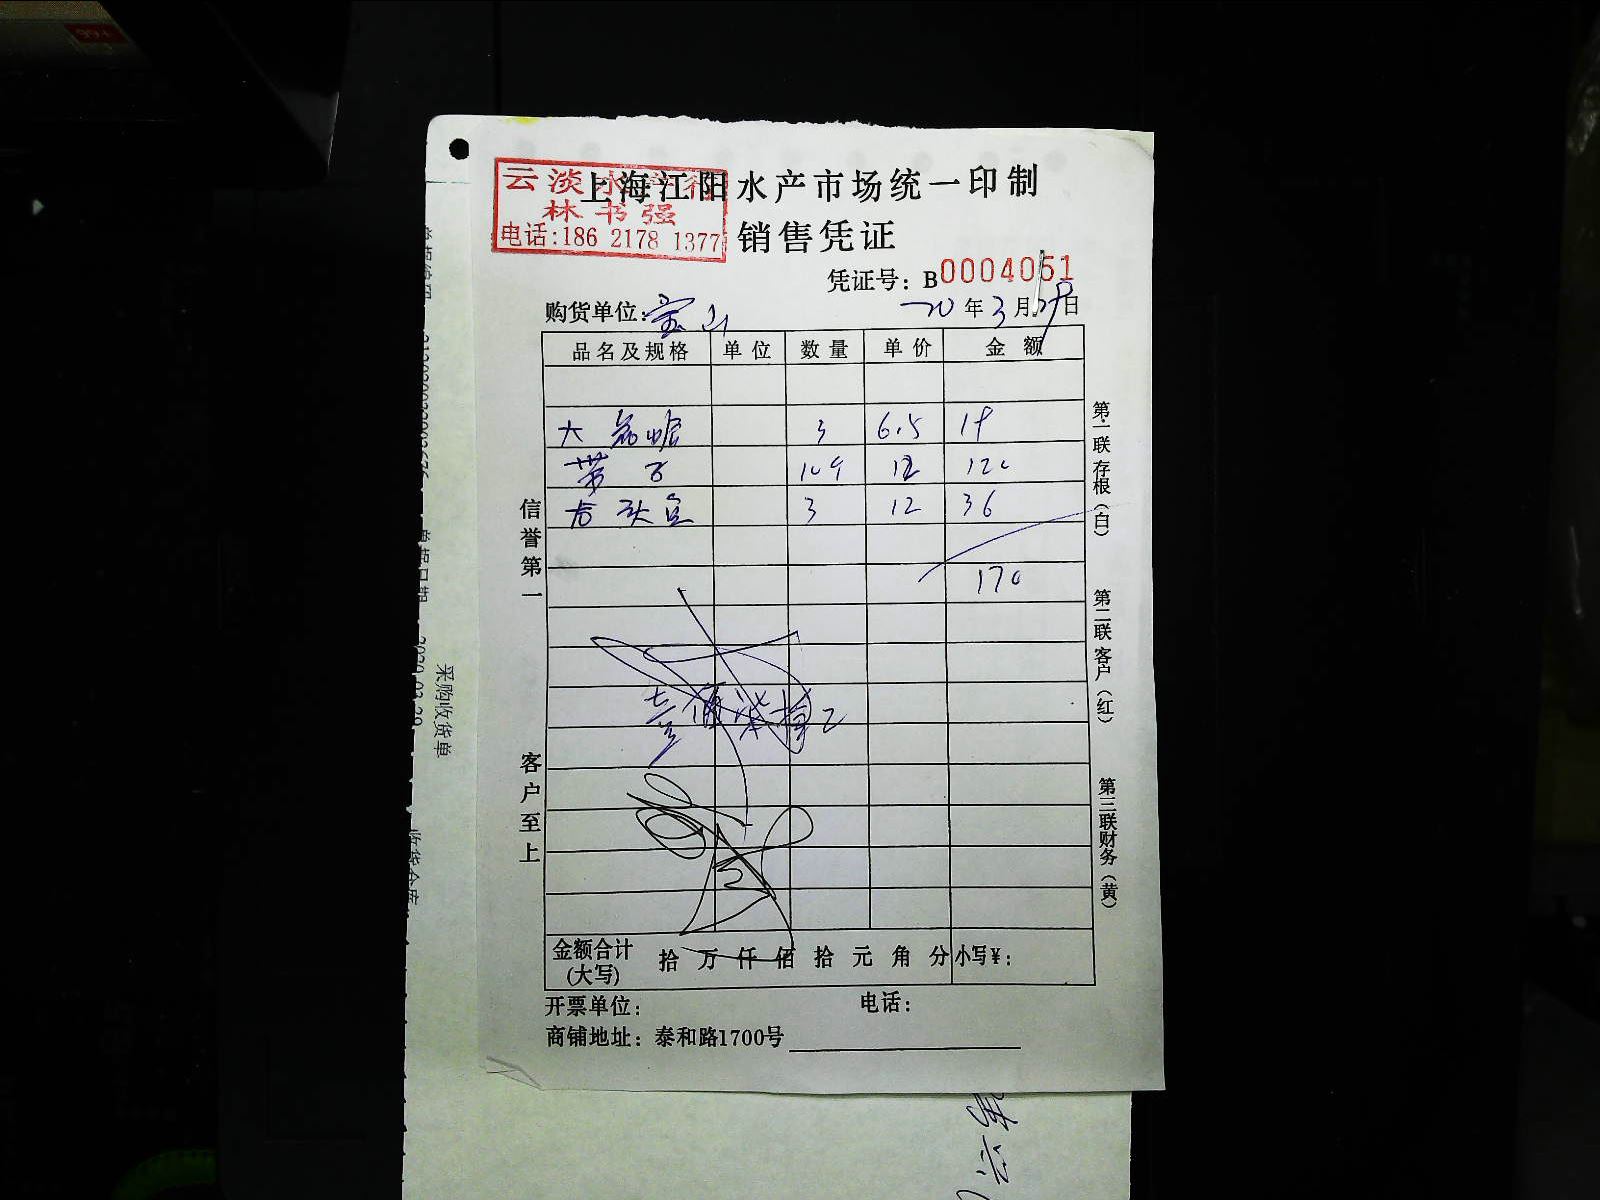 99+
云淡水产行
林书强
电话:186 2178 1377
上海江阳水产市场统一印制
销售凭证
凭证号：B0004051
购货单位：宝山
20年3月29日
品名及规格 单位 数量 单价 金额
大 3 6.5 19
带子 12 120
3 12 36
170
信誉第一
客户至上
第一联存根（白）
第二联客户（红）
第三联财务（黄）
金额合计
(大写)
拾万仟佰拾元角分 小写¥：
开票单位：
电话：
商铺地址：泰和路1700号
采购收货单